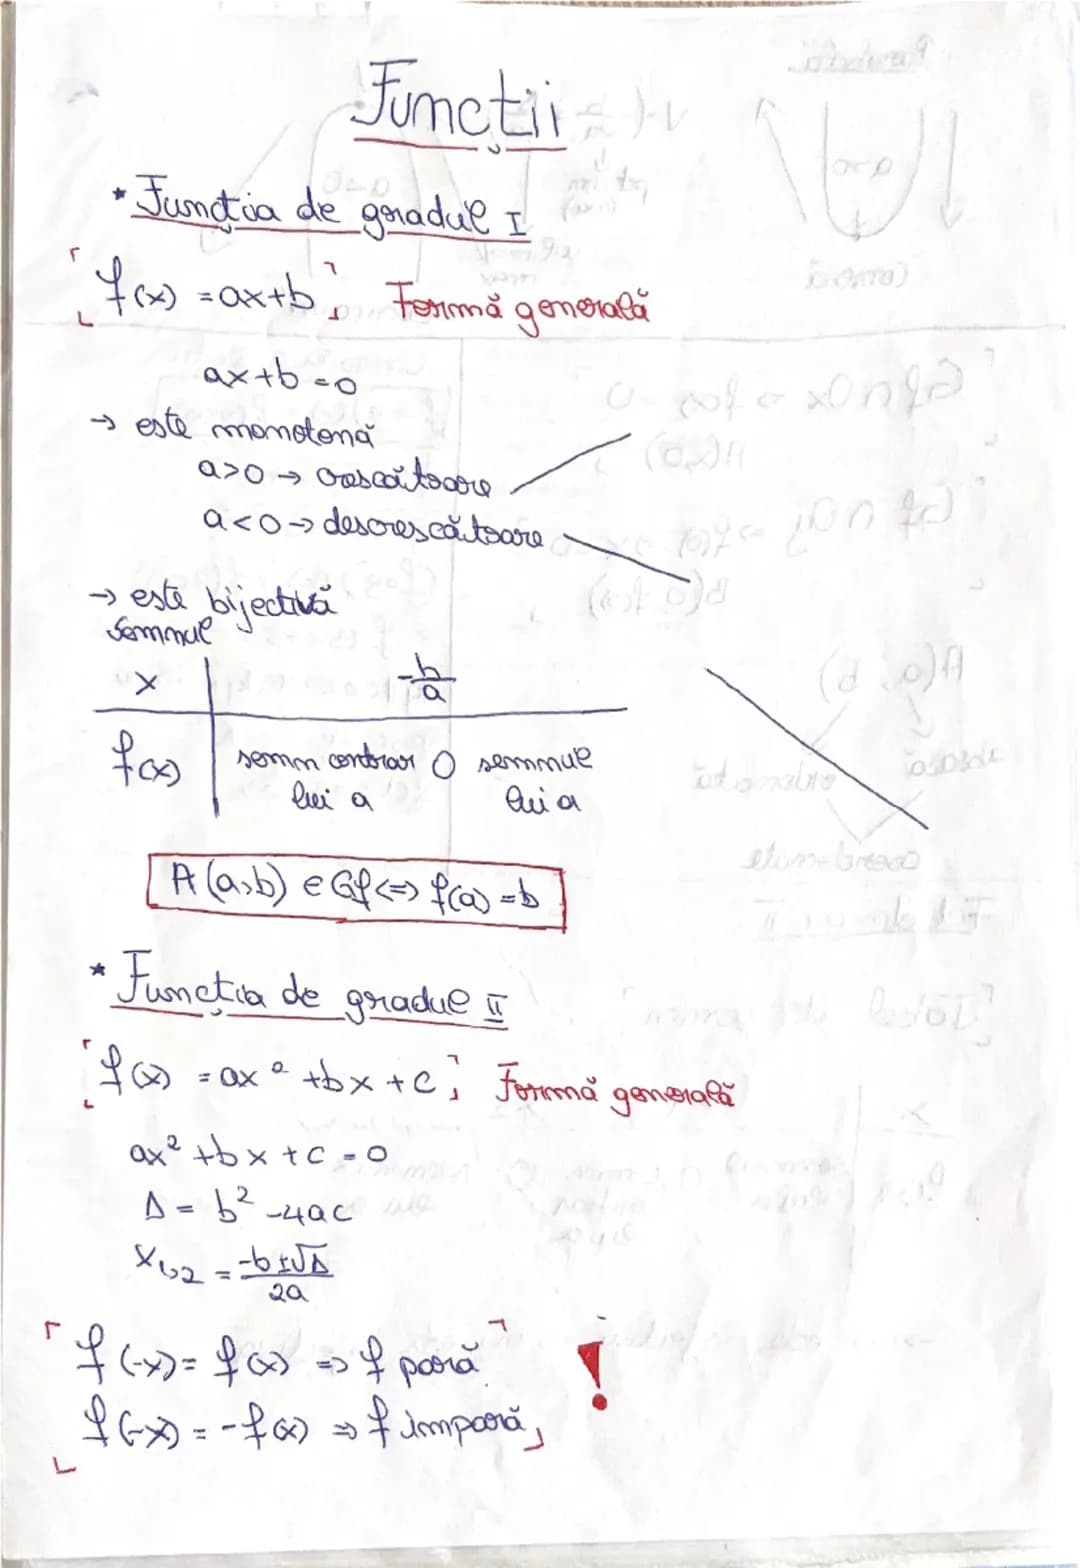 Funcții
* Funcția de gradul I
f(x) = ax+b, Formă generală
ax+b = 0
→ este monotonă
a>0 → crescătoare
a<0 → descrescătoare
→ este bijectivă
Semnul
x -b/a
f(x) semn contrar 0 semnul
lui a lui a
A(a,b) ∈ Gf <=> f(a) = b
* Funcția de gradul II
f(x) = ax² + bx + c, Formă generală
ax² + bx + c = 0
Δ = b² - 4ac
x1,2 = -b±√Δ / 2a
f(-x) = f(x) => f pară !
f(-x) = -f(x) => f impară,